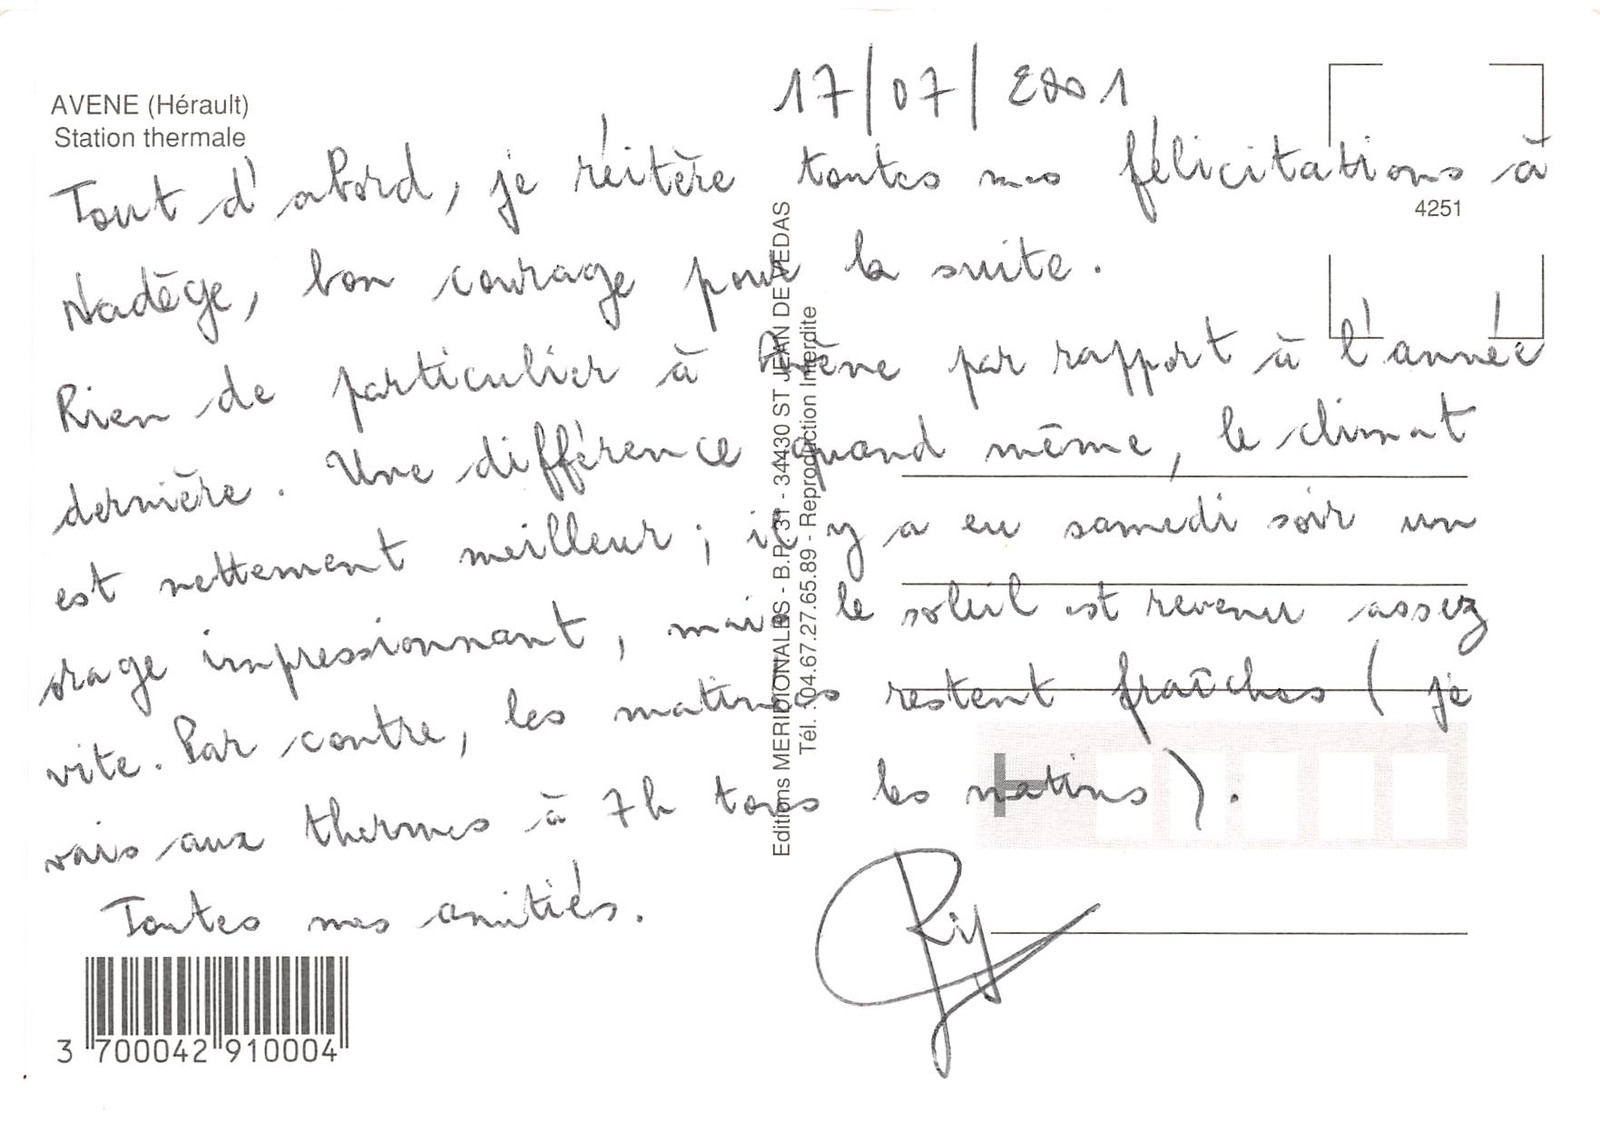 AVENE (Hérault)
Station thermale
17/07/2001
4251
Tout d'abord, je réitère toutes mes félicitations à
Nadège, bon courage pour la suite.
Rien de particulier à Avène par rapport à l'année
dernière. Une différence quand même, le climat
est nettement meilleur ; il y a eu samedi soir un
orage impressionnant, mais le soleil est revenu assez
vite. Par contre, les matinées restent fraîches (je
vais aux thermes à 7h tous les matins).
Toutes mes amitiés.
Editions MERIDIONALES - B.P. 31 - 34430 ST JEAN DE VEDAS
Tél. : 04.67.27.65.89 - Reproduction Interdite
3 700042 910004